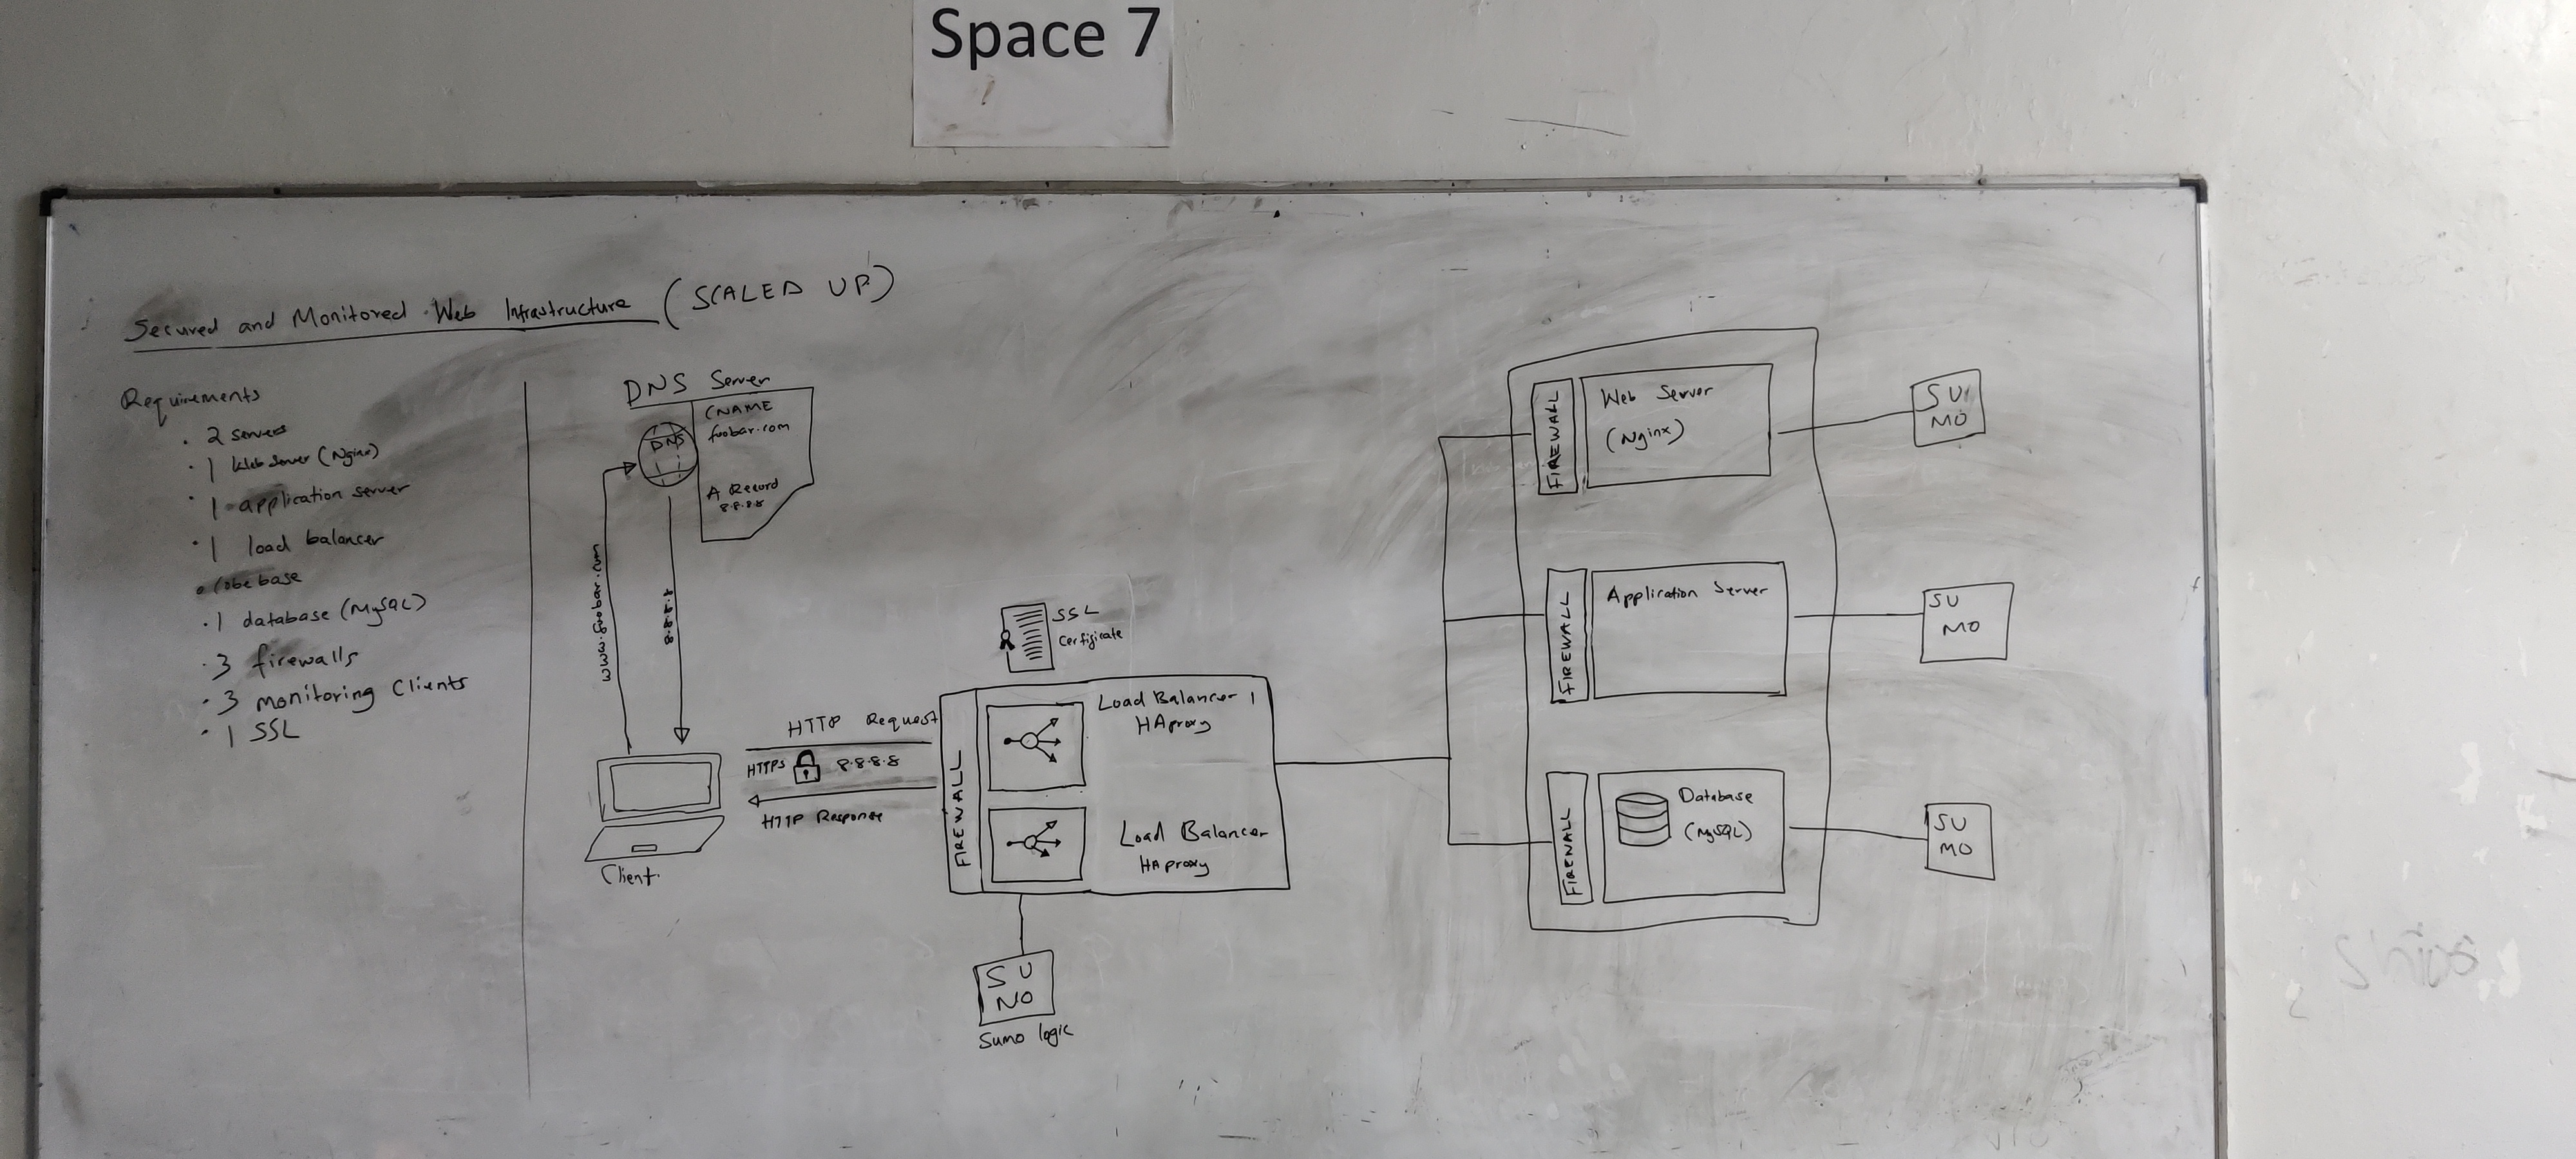 Space 7
Secured and Monitored Web Infrastructure (SCALED UP)
Requirements
• 2 servers
• 1 Web Server (Nginx)
• 1 application server
• 1 load balancer
• Codebase
• 1 database (MySQL)
• 3 firewalls
• 3 monitoring Clients
• 1 SSL
DNS Server
DNS
CNAME
foobar.com
A Record
8.8.8.8
www.foobar.com
8.8.8.8
Client
HTTP Request
HTTPS 8.8.8.8
HTTP Response
SSL
Certificate
FIREWALL
Load Balancer 1
HAproxy
Load Balancer
HAproxy
SU
MO
Sumo logic
FIREWALL
Web Server
(Nginx)
SU
MO
FIREWALL
Application Server
SU
MO
FIREWALL
Database
(MySQL)
SU
MO